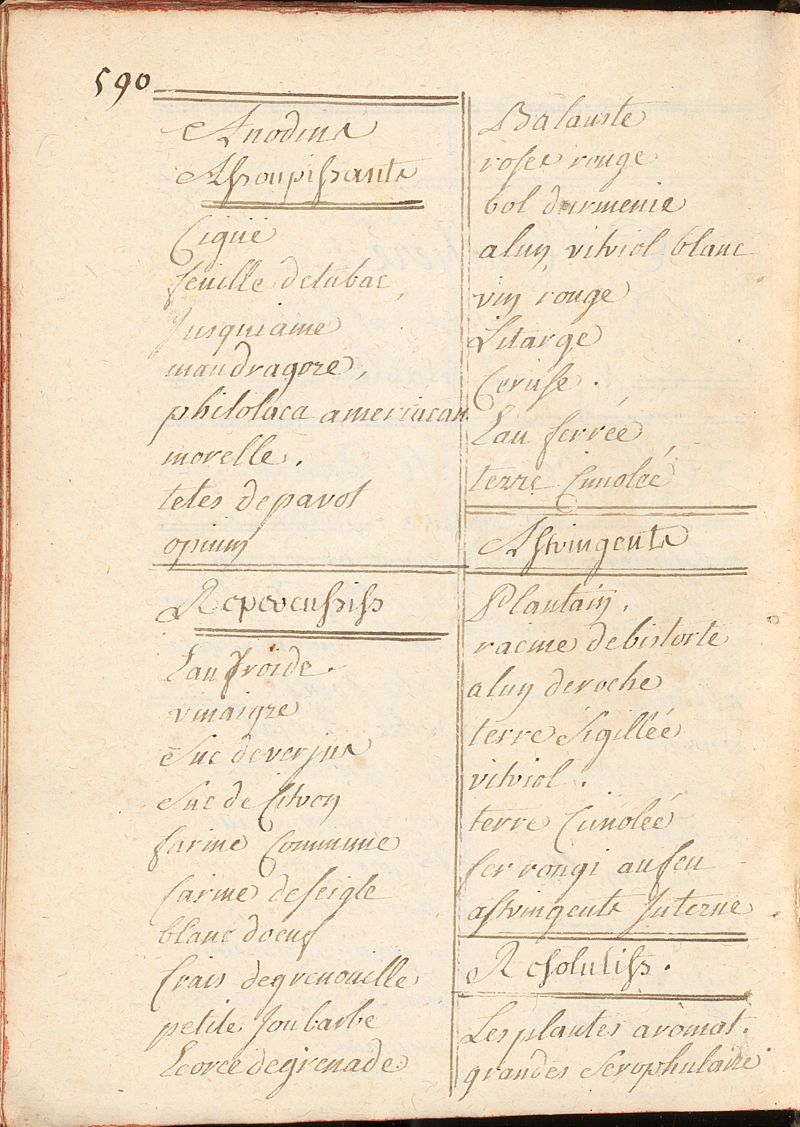 590
Anodins
Assoupissants
Ciguë
feuille detabac,
Jusquiame
mandragore,
phitolaca americacan
morelle.
tetes depavot
opium
Repercussifs
Eau froide.
vinaigre
Suc deverjus
Suc de Citron
farine Commune
farine deseigle
blanc doeuf
frais degrenouille
petite Joubarbe
Ecorce degrenade
Balauste
roses rouge
bol darmenie
alun vitriol blanc
vin rouge
Litarge
Ceruse.
Eau ferrée
terre Cimolée
Astringents
Plantain.
racine debistorte
alun deroche
terre Sigillée
vitriol.
terre Cimolée
fer rougi aufeu
astringents Interne
Resolutifs.
Les plantes aromat.
grandes Scrophulaire